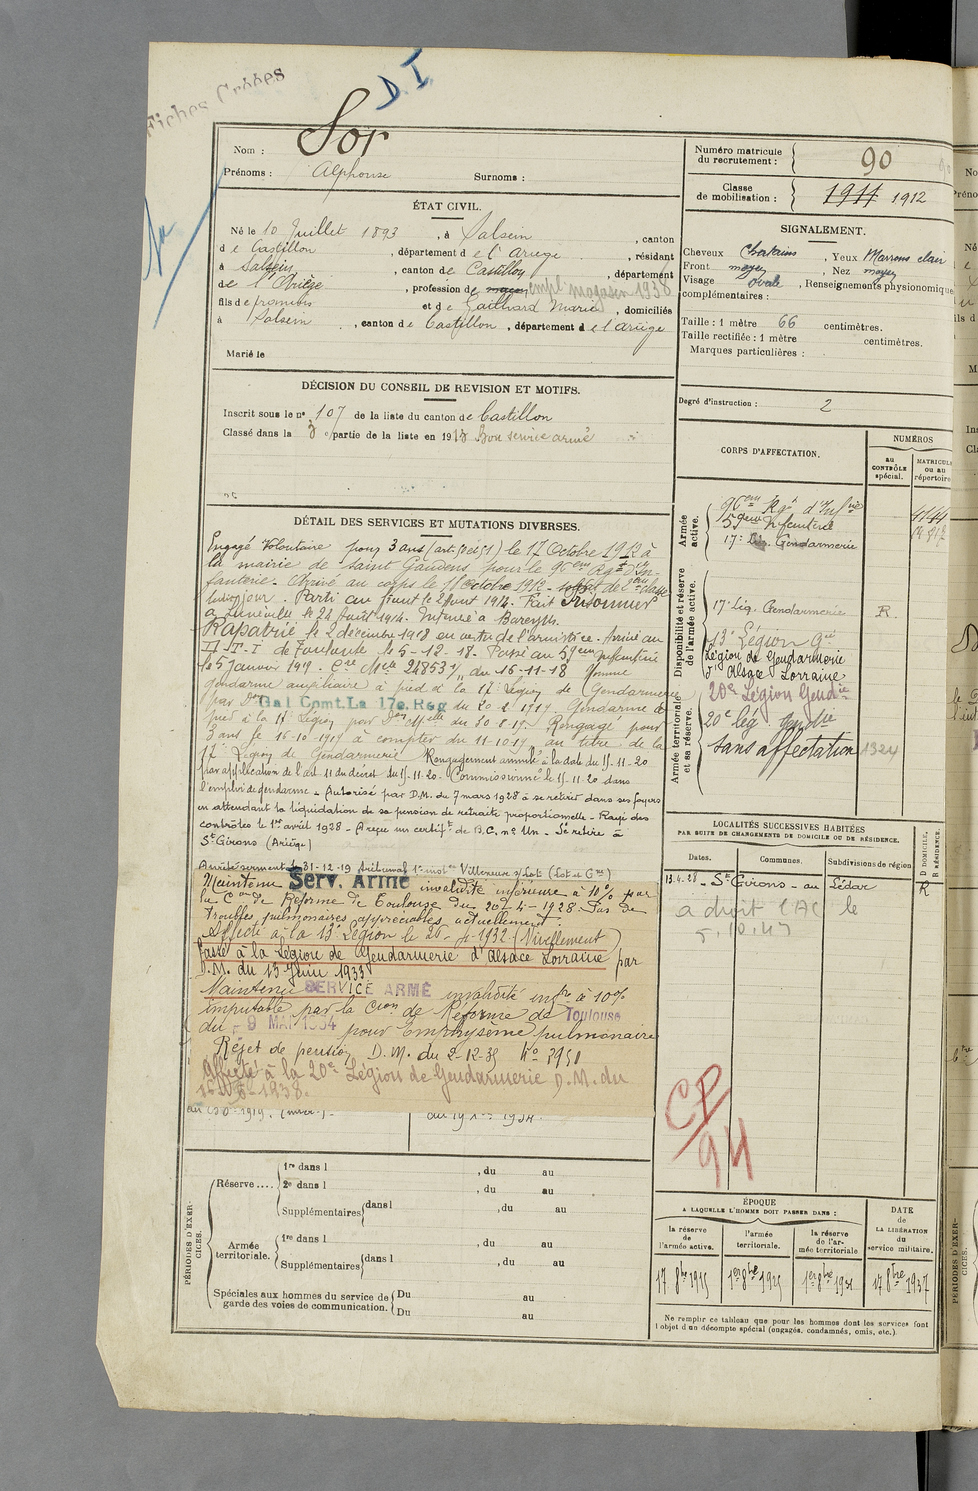 Fiches Créées
D.I.
Nom : Sor
Prénoms : Alphonse Surnoms :
Numéro matricule du recrutement : 90
Classe de mobilisation : 1911 1912
ÉTAT CIVIL.
Né le 10 Juillet 1893, à Salsein, canton
de Castillon, département de l'Ariège, résidant
à Salsein, canton de Castillon, département
de l'Ariège, profession de empl. magasin 1938
fils de françois et de Gailhard Maria, domiciliés
à Salsein, canton de Castillon, département de l'Ariège
Marié le
SIGNALEMENT.
Cheveux Chatains, Yeux Marrons clair
Front moyen, Nez moyen
Visage ovale, Renseignements physionomiques
complémentaires :
Taille : 1 mètre 66 centimètres.
Taille rectifiée : 1 mètre centimètres.
Marques particulières :
Degré d'instruction : 2
DÉCISION DU CONSEIL DE REVISION ET MOTIFS.
Inscrit sous le n° 107 de la liste du canton de Castillon
Classé dans la 3e partie de la liste en 1913 Bon service armé
DÉTAIL DES SERVICES ET MUTATIONS DIVERSES.
Engagé Volontaire pour 3 ans (art. 50 et 51) le 17 Octobre 1912 à
la mairie de Saint Gaudens pour le 96em Rgt d'In-
fanterie. Arrivé au corps le 18 Octobre 1912 soldat de 2em classe
ledit jour. Parti au front le 2 Aout 1914. Fait Prisonnier
à Lunéville le 22 Août 1914. Interné à Bareyth.
Rapatrié le 2 décembre 1918 en vertu de l'armistice. Arrivé au
D.I. de Toulouse le 5-12-18. Passé au 59em Infanterie
le 5 Janvier 1919. Cre Mlle 24853 1/11 du 16-11-18 Nommé
gendarme auxiliaire à pied à la 17e Légion de Gendarmerie
par Don Gal Comt. La 17e Reg du 20-2-1919. Gendarme à
pied à la 17e Légion par Don Mlle du 30-8-19. Rengagé pour
3 ans le 16-10-1919 à compter du 11-10-19 au titre de la
17e Légion de Gendarmerie Rengagement annulé à la date du 15-11-20
par application de l'art. 11 du décret du 15-11-20. Commissionné le 15-11-20 dans
l'emploi de gendarme. Autorisé par D.M. du 7 mars 1928 à se retirer dans ses foyers
en attendant la liquidation de sa pension de retraite proportionnelle. Rayé des
contrôles le 1er avril 1928. A reçu un certift de B.C. n° Un. Se retire à
St Girons (Ariège)
A prêté serment le 31-12-19 tribunal 1e inst Villeneuve s/Lot (Lot et Gne)
Maintenu Serv. Armé invalidité inférieure à 10% par
la Con de Réforme de Toulouse du 20-4-1928. Pas de
troubles pulmonaires appréciables actuellement
Affecté à la 13e Légion le 26-4-1932 (Nivellement)
Passé à la Légion de Gendarmerie d'Alsace Lorraine par
D.M. du 13 Juin 1933
Maintenu SERVICE ARMÉ invalidité infre à 10%
imputable par la Cion de Réforme de Toulouse
du 9 MAI 1934 pour Emphysème pulmonaire
Rejet de pension D.M. du 2-12-35 N° 3950
Affecté à la 20e Légion de Gendarmerie D.M. du
CORPS D'AFFECTATION.
NUMÉROS
au CONTRÔLE spécial.
MATRICULE ou au répertoire
Armée active.
96em Rgt d'Infrie
59em Infanterie
17e Lég. Gendarmerie
Disponibilité et réserve de l'armée active.
17e Lég. Gendarmerie R.
13e Légion Gie
Légion de Gendarmerie
d'Alsace Lorraine
Armée territoriale et sa réserve.
20e Légion Gendie
20e lég Gendie
Sans affectation
LOCALITÉS SUCCESSIVES HABITÉES
PAR SUITE DE CHANGEMENTS DE DOMICILE OU DE RÉSIDENCE.
Dates. Communes. Subdivisions de région. D DOMICILE, R RÉSIDENCE.
13.4.28 St Girons - au Lédar R
a droit CAC le
5.10.45
CP
94
PÉRIODES D'EXERCICES.
Réserve.... 1re dans l , du au
2e dans l , du au
Supplémentaires dans l , du au
Armée territoriale. 1re dans l , du au
Supplémentaires dans l , du au
Spéciales aux hommes du service de garde des voies de communication. Du au
Du au
ÉPOQUE
A LAQUELLE L'HOMME DOIT PASSER DANS :
la réserve de l'armée active.
l'armée territoriale.
la réserve de l'armée territoriale
DATE de LA LIBÉRATION du service militaire.
17 8bre 1915
1er 8bre 1925
1er 8bre 1931
17 8bre 1937
Ne remplir ce tableau que pour les hommes dont les services font
l'objet d'un décompte spécial (engagés, condamnés, omis, etc.).